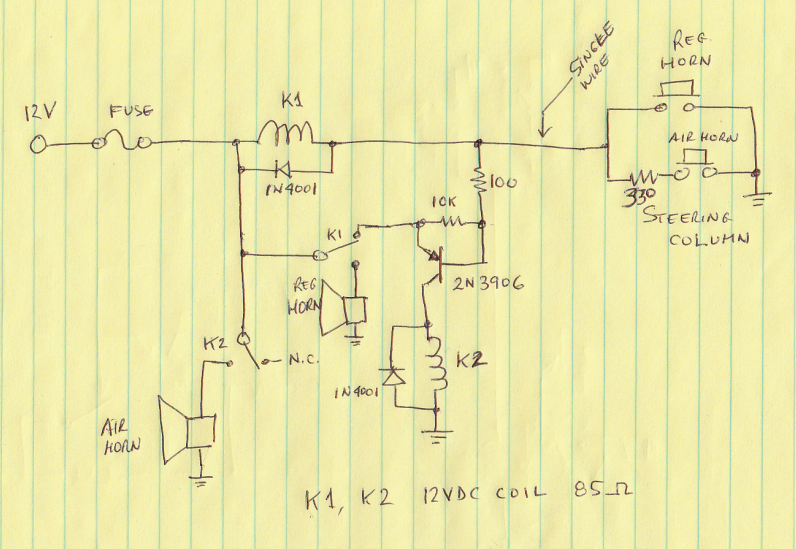 REG
HORN
SINGLE
WIRE
12V
FUSE
K1
AIR HORN
1N4001
100
330
STEERING
COLUMN
10K
K1
2N3906
REG
HORN
K2
N.C.
K2
1N4001
AIR
HORN
K1, K2 12VDC COIL 85Ω